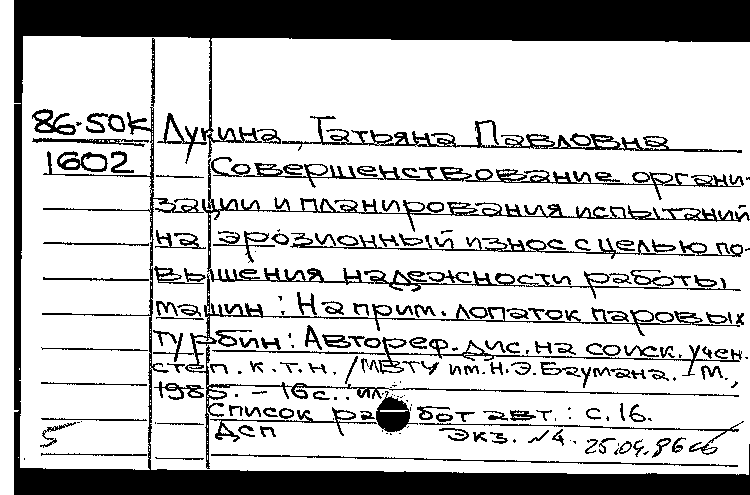 86-50К
1602
Лукина, Татьяна Павловна
Совершенствование органи-
зации и планирования испытаний
на эрозионный износ с целью по-
вышения надежности работы
машин: На прим. лопаток паровых
турбин: Автореф. дис. на соиск. учен.
степ. к.т.н. /МВТУ им. Н.Э. Баумана. - М.,
1985. - 16с.: ил.
Список работ авт.: с. 16.
ДСП Экз. №4. 25.04.86
5